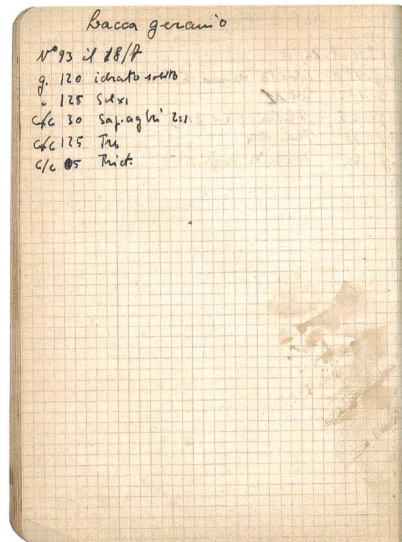 Lacca geranio
N° 93 il 18/7
g. 120 idrato solito
" 125 Sol x 1
c/c 30 Sap. aghi 2:1
c/c 125 Tro
c/c 5 Trict.